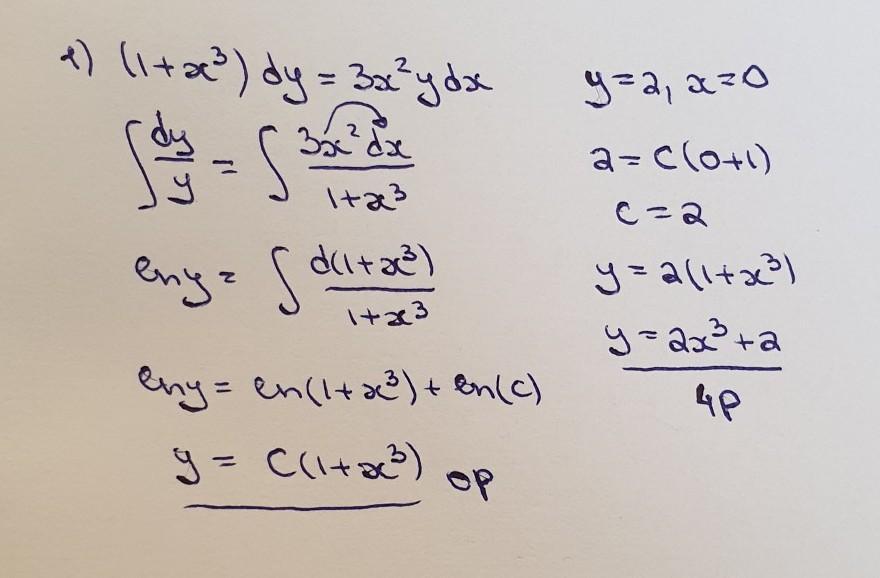 1) (1+x³) dy = 3x²y dx
∫ dy/y = ∫ 3x² dx / 1+x³
ln y = ∫ d(1+x³) / 1+x³
ln y = ln(1+x³) + ln(C)
y = C(1+x³) OP
y=2, x=0
2 = C(0+1)
C = 2
y = 2(1+x³)
y = 2x³+2
ЧР